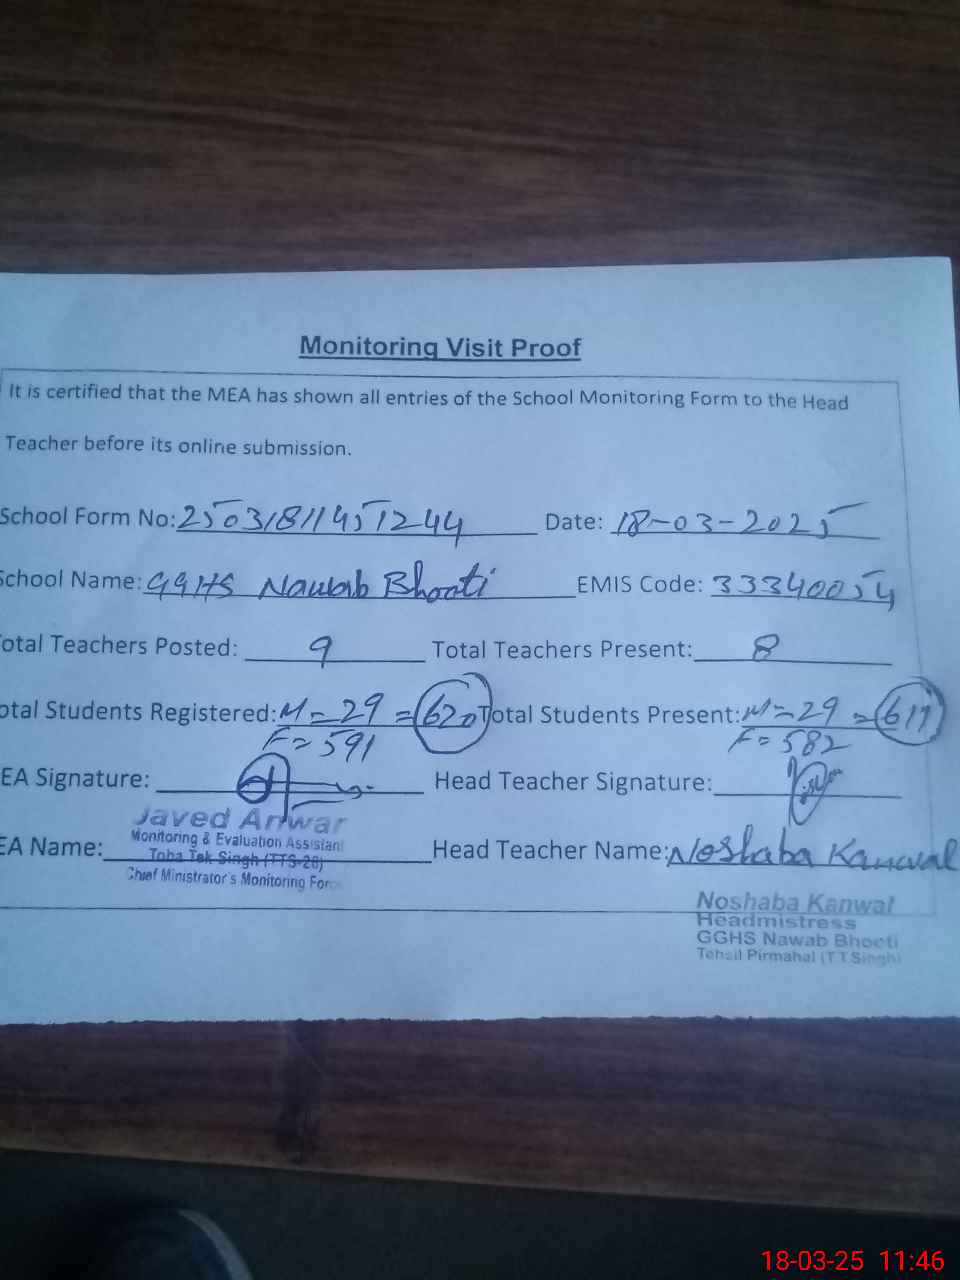 Monitoring Visit Proof
It is certified that the MEA has shown all entries of the School Monitoring Form to the Head
Teacher before its online submission.
School Form No: 25031811451244 Date: 18-03-2025
School Name: GGHS Nawab Bhooti EMIS Code: 33340054
otal Teachers Posted: 9 Total Teachers Present: 8
otal Students Registered: M = 29 = 620 Total Students Present: M = 29 = 611
F = 591 F = 582
EA Signature: Head Teacher Signature:
Javed Anwar
Monitoring & Evaluation Assistant
EA Name: Toba Tek Singh (TTS-26) Head Teacher Name: Noshaba Kanwal
Chief Ministrator's Monitoring Force
Noshaba Kanwal
Headmistress
GGHS Nawab Bhooti
Tehsil Pirmahal (T.T.Singh)
18-03-25 11:46